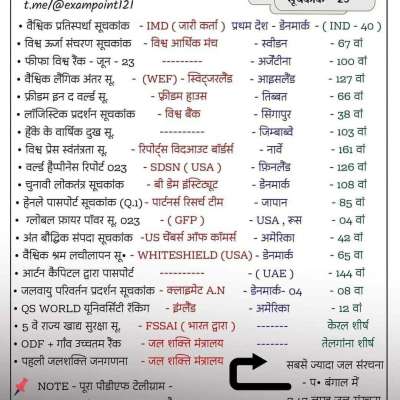 t.me/@exampoint121
सूचकांक - 23
• वैश्विक प्रतिस्पर्धा सूचकांक - IMD ( जारी कर्ता ) प्रथम देश - डेनमार्क - ( IND - 40 )
• विश्व ऊर्जा संचरण सूचकांक - विश्व आर्थिक मंच - स्वीडन - 67 वां
• फीफा विश्व रैंक - जून - 23 --------- - अर्जेंटीना - 100 वां
• वैश्विक लैंगिक अंतर सू. - (WEF) - स्विट्जरलैंड - आइसलैंड - 127 वां
• फ्रीडम इन द वर्ल्ड सू. - फ्रीडम हाउस - तिब्बत - 66 वां
• लॉजिस्टिक प्रदर्शन सूचकांक - विश्व बैंक - सिंगापुर - 38 वां
• हैंके के वार्षिक दुख सू. ----------- - जिम्बाब्वे - 103 वां
• विश्व प्रेस स्वतंत्रता सू. - रिपोर्ट्स विदआउट बॉर्डर्स - नार्वे - 161 वां
• वर्ल्ड हैप्पीनेस रिपोर्ट 023 - SDSN ( USA ) - फ़िनलैंड - 126 वां
• चुनावी लोकतंत्र सूचकांक - बी डेम इंस्टिट्यूट - डेनमार्क - 108 वां
• हेनले पासपोर्ट सूचकांक (Q.1) - पार्टनर्स रिसर्च टीम - जापान - 85 वां
• ग्लोबल फ़ायर पॉवर सू. 023 - ( GFP ) - USA , रूस - 04 वां
• अंत बौद्धिक संपदा सूचकांक -US चेंबर्स ऑफ कॉमर्स - अमेरिका - 42 वां
• वैश्विक श्रम लचीलापन सू• - WHITESHIELD (USA) - डेनमार्क - 65 वां
• आर्टन कैपिटल द्वारा पासपोर्ट ---------- - ( UAE ) - 144 वां
• जलवायु परिवर्तन प्रदर्शन सूचकांक - क्लाइमेट A.N - डेनमार्क- 04 - 08 वां
• QS WORLD यूनिवर्सिटी रैंकिंग - इंग्लैंड - अमेरिका - 12 वां
• 5 वे राज्य खाद्य सुरक्षा सू. - FSSAI ( भारत द्वारा ) ------- केरल शीर्ष
• ODF + गाँव उच्चतम रैंक - जल शक्ति मंत्रालय ------- तेलगांना शीर्ष
• पहली जलशक्ति जनगणना - जल शक्ति मंत्रालय
सबसे ज्यादा जल संरचना
- प• बंगाल में
NOTE - पूरा पीडीएफ टेलीग्राम -